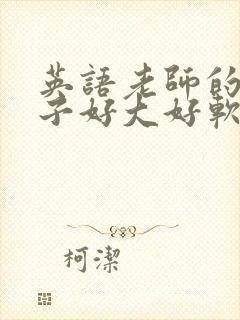 英語老師的
子好大好軟
柯潔